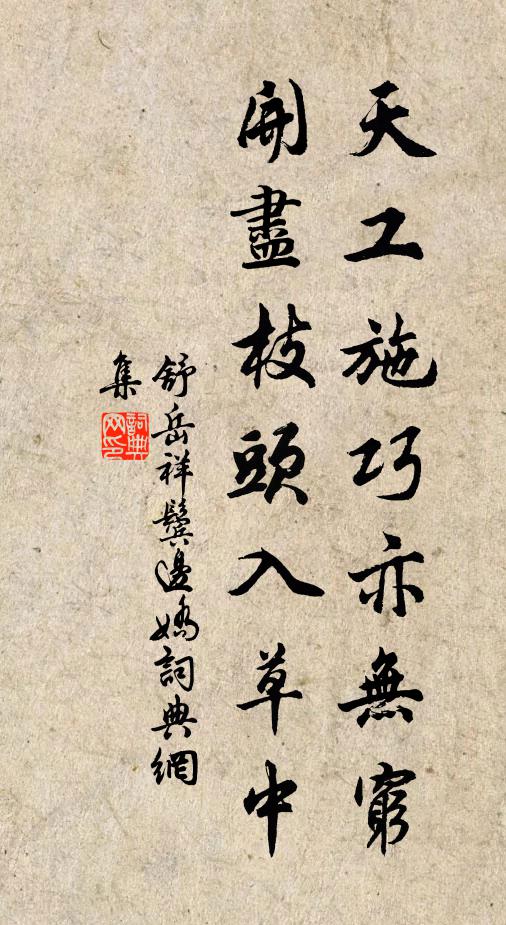 天工施巧亦無窮
開盡枝頭入草中
舒岳祥鬢邊嬌詞典網
集
詞典
网印